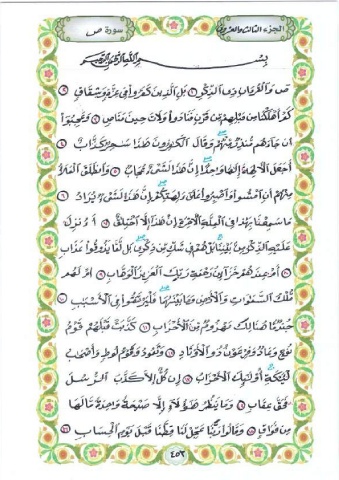 الجزء الثالث والعشرون
سورة ص
بسم الله الرحمن الرحيم
ص والقرءان ذى الذكر ١ بل الذين كفروا فى عزة وشقاق ٢
كم أهلكنا من قبلهم من قرن فنادوا ولات حين مناص ٣ وعجبوا
أن جاءهم منذر منهم وقال الكفرون هذا سحر كذاب ٤
أجعل الألهة إلها وحدا إن هذا لشىء عجاب ٥ وانطلق الملأ
منهم أن امشوا واصبروا على ءالهتكم إن هذا لشىء يراد ٦
ما سمعنا بهذا فى الملة الأخرة إن هذا إلا اختلق ٧ أءنزل
عليه الذكر من بيننا بل هم فى شك من ذكرى بل لما يذوقوا عذاب
٨ أم عندهم خزائن رحمة ربك العزيز الوهاب ٩ أم لهم
ملك السموات والأرض وما بينهما فليرتقوا فى الأسبب ١٠
جند ما هنالك مهزوم من الأحزاب ١١ كذبت قبلهم قوم
نوح وعاد وفرعون ذو الأوتاد ١٢ وثمود وقوم لوط وأصحب
لئيكة أولئك الأحزاب ١٣ إن كل إلا كذب الرسل
فحق عقاب ١٤ وما ينظر هؤلاء إلا صيحة وحدة ما لها
من فواق ١٥ وقالوا ربنا عجل لنا قطنا قبل يوم الحساب ١٦
٤٥٣